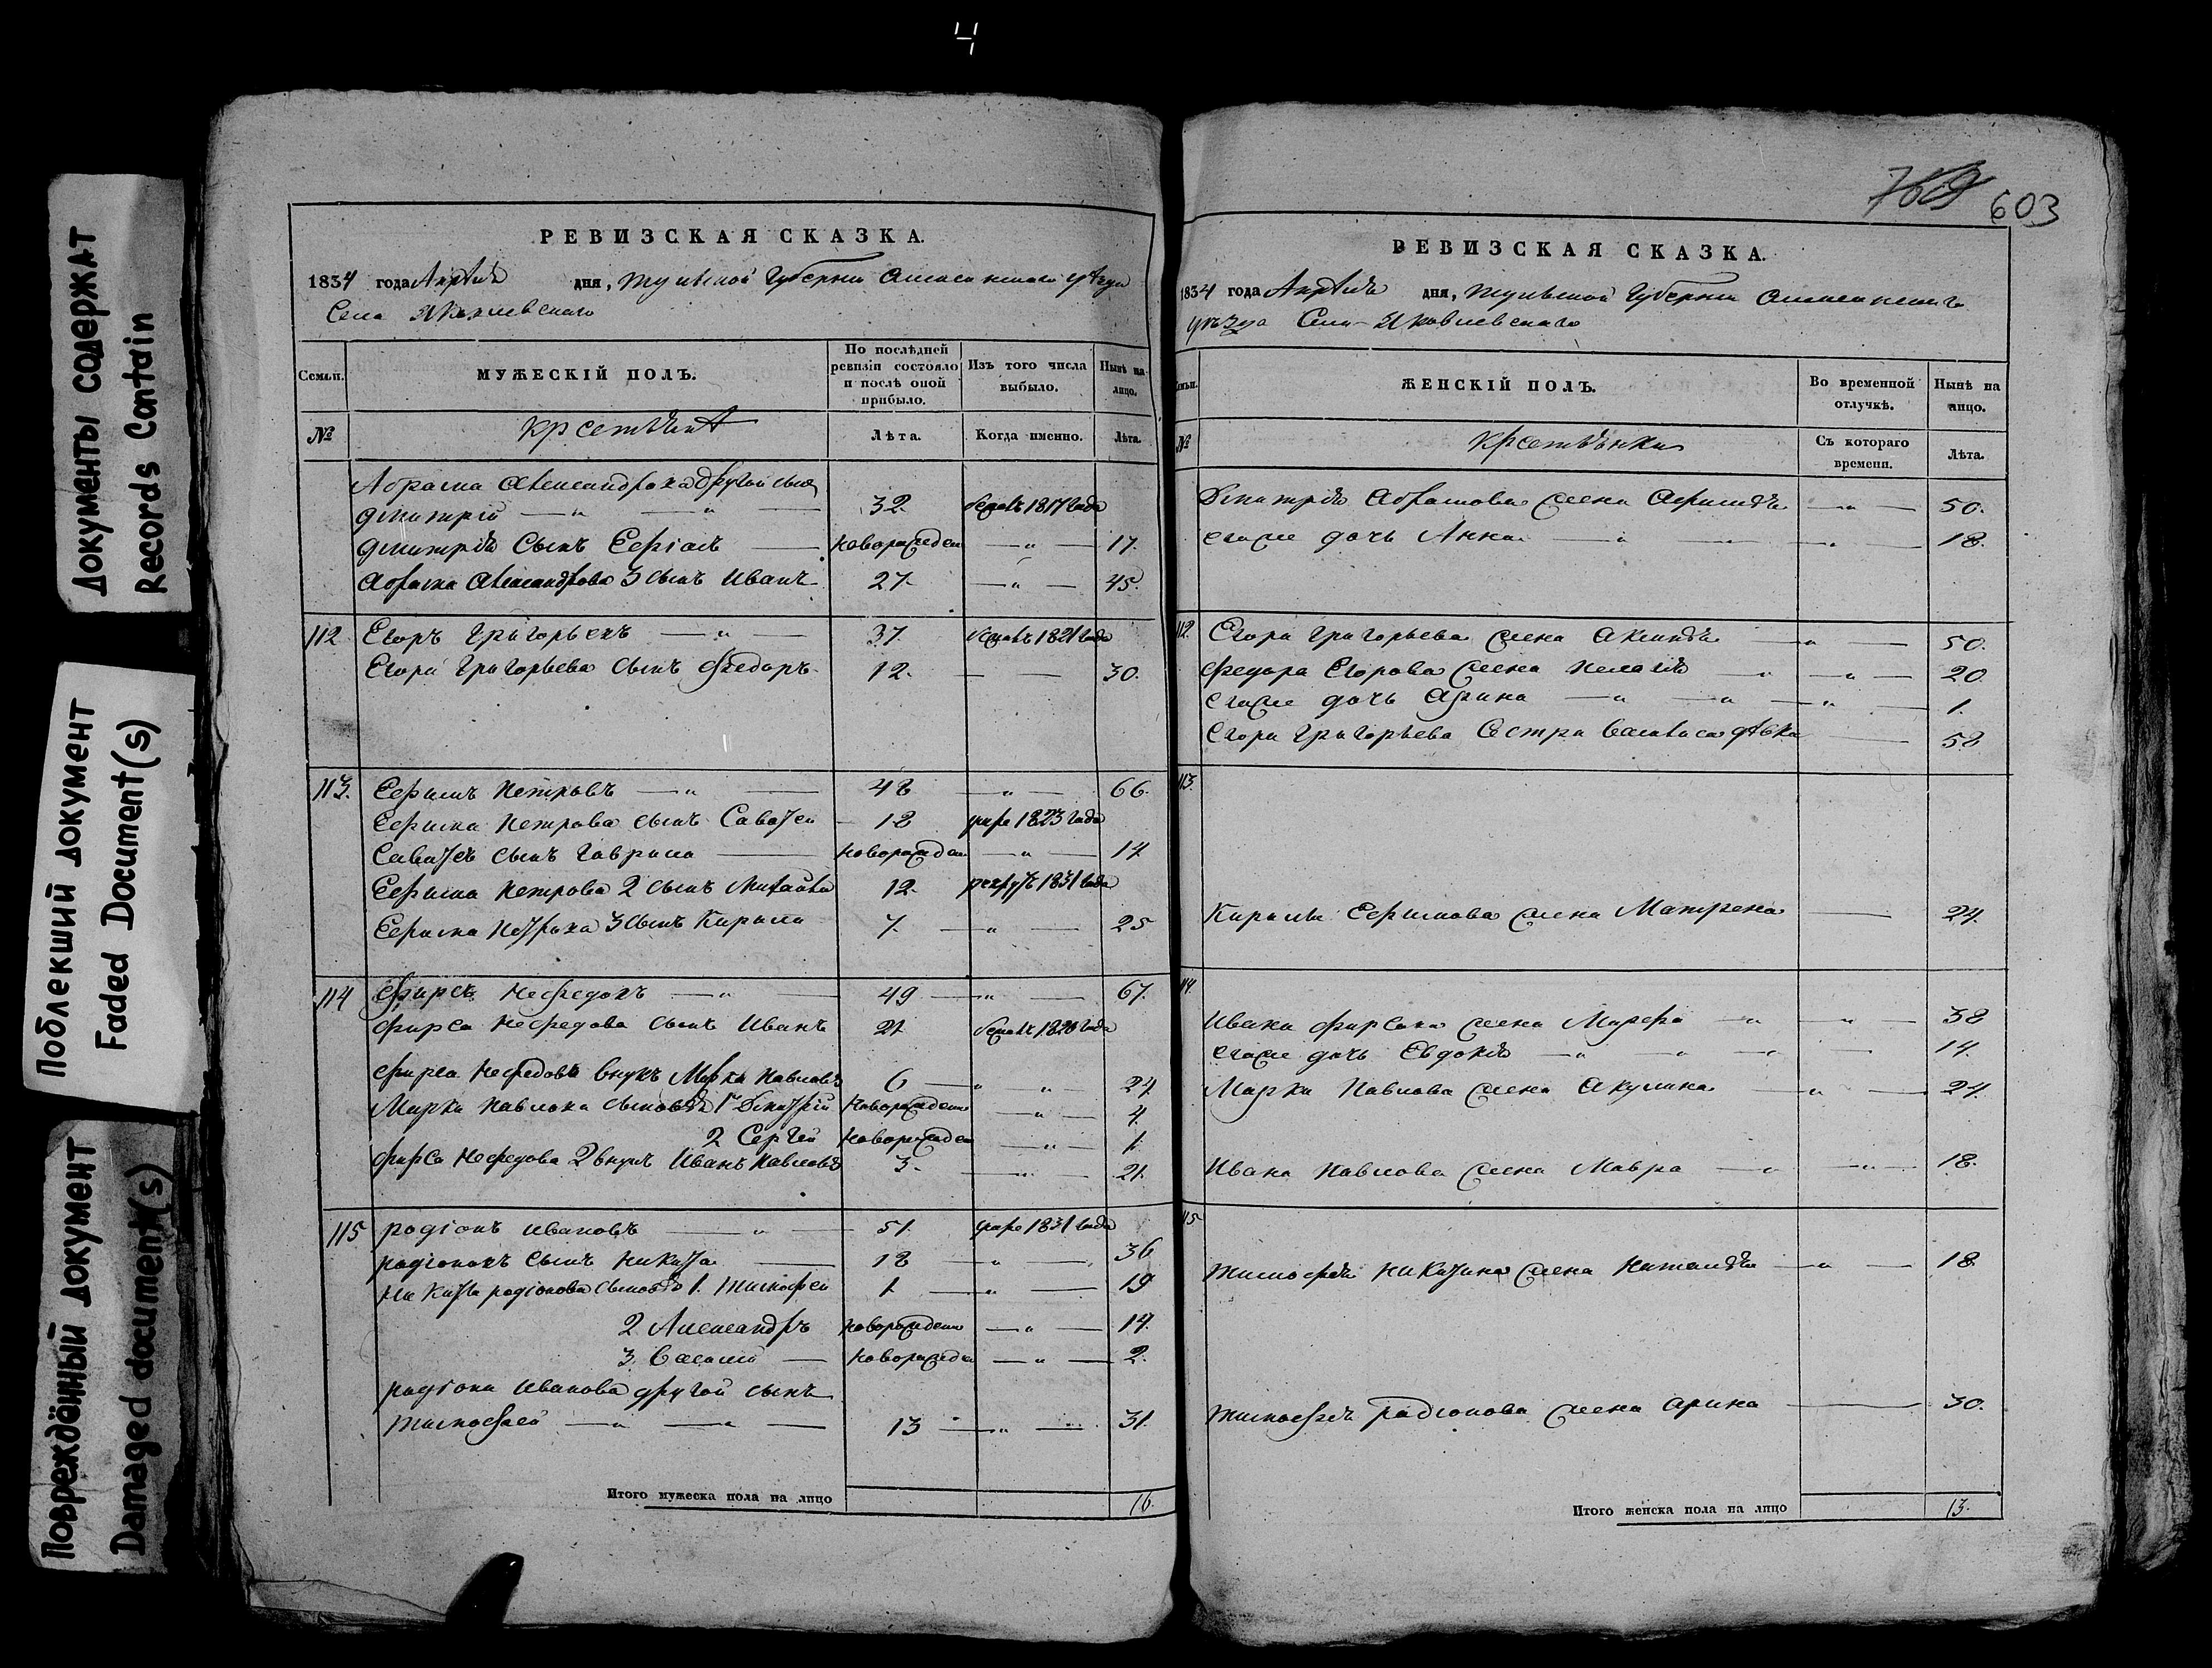 4
Документы содержат
Records Contain
Поблекший документ
Faded Document(s)
Повреждённый документ
Damaged document(s)
РЕВИЗСКАЯ СКАЗКА.
1834 года Апреля дня, Тульской Губернии Алексинскаго уезда
Села Яковлевскаго
Семьи. МУЖЕСКІЙ ПОЛЪ. По послѣдней ревизіи состояло и послѣ оной прибыло. Изъ того числа выбыло. Нынѣ на лицо.
№ Лѣта. Когда именно. Лѣта.
Абрама Александрова другой сынъ
Дмитрій 32 1817 года
Дмитрія сынъ новорожден 17.
Абрама Александрова 3 сынъ Иванъ 27. 45.
112 Егоръ Григорьевъ 37. 1821 года
Егора Григорьева сынъ Федоръ 12. 30.
113. Ефимъ Петровъ 48 66.
Ефима Петрова сынъ Савотеи 18 умре 1823 года
сынъ Гаврила новорожден 14
Ефима Петрова 2 сынъ Михайла 12. рекрутъ 1831 года
Ефима Петрова 3 сынъ Кирила 7. 25
114 Фирсъ Нефедовъ 49 67.
Фирса Нефедова сынъ Иванъ 21
Фирса Нефедова внукъ Марка Павловъ 6 24
Марка Павлова сыновья 1й Дмитрій новорожден 4.
2 Сергей новорожден 1.
Фирса Нефедова 2 внукъ Иванъ Павловъ 3. 21.
115 Родіонъ Ивановъ 51. умре 1831 года
Родіоновъ сынъ Никита 18 36
Никиты Родіонова сыновья 1. Тимофей 1. 19
2 Александръ новорожден 14.
3. Василій новорожден 2.
Родіона Иванова другой сынъ
Тимофей 13 31.
Итого мужеска пола на лицо 16.
603
РЕВИЗСКАЯ СКАЗКА.
1834 года Апреля дня, Тульской Губернии Алексинскаго
уезда Села Яковлевскаго
ЖЕНСКІЙ ПОЛЪ. Во временной отлучкѣ. Нынѣ на лицо.
№ Съ котораго времени. Лѣта.
Дмитрія Абрамова жена 50.
его же дочь Анна 18.
112. Егора Григорьева жена 50.
Федора Егорова жена Пелагея 20
его же дочь Арина 1.
Егора Григорьева сестра Василиса девка 58
113.
Кирилы Ефимова жена Матрена 24.
114.
Ивана Фирсова жена Марфа 38
его же дочь Евдокия 14.
Марка Павлова жена Акулина 24.
Ивана Павлова жена Мавра 18.
115
Тимофея Никитина жена Наталья 18
Тимофея Радіонова жена Арина 30.
Итого женска пола на лицо 13.